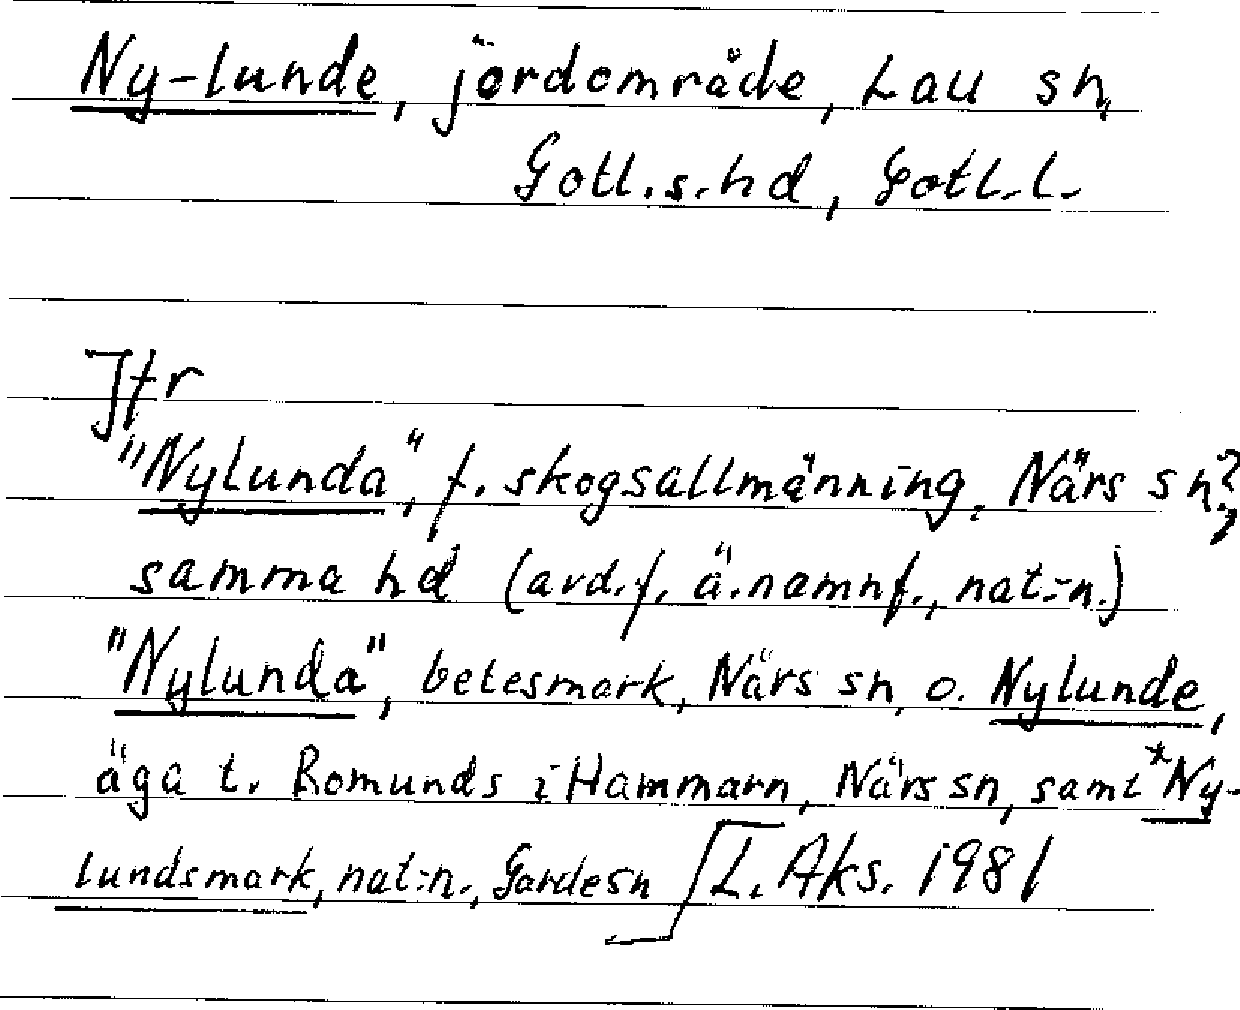 Ny-lunde, jordområde, Lau sn,
Gotl.s.hd, Gotl.l.
Jfr
"Nylunda", f. skogsallmänning, Närs sn?,
samma hd (avd.f. ä.namnf., nat:n.)
"Nylunda", betesmark, Närs sn, o. Nylunde,
äga t. Romunds i Hammarn, Närs sn, samt *Ny-
lundsmark, nat:n., Garde sn I. Aks. 1981